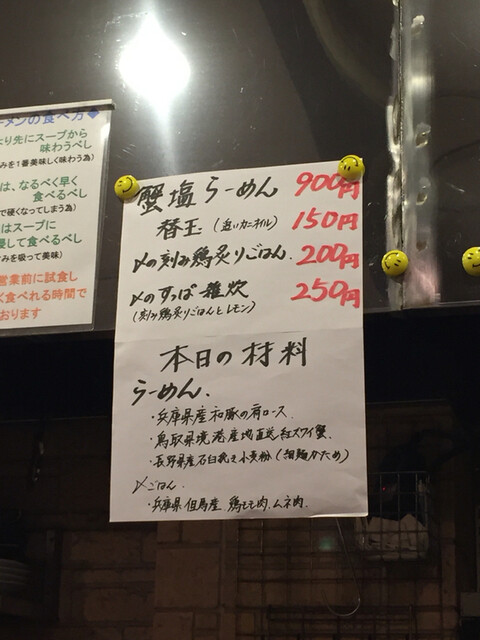 ーメンの食べ方◆
より先にスープから
味わうべし
みを1番美味しく味わう為)
は、なるべく早く
食べるべし
で硬くなってしまう為)
はスープに
浸して食べるべし
みを吸って美味)
営業前に試食し
く食べれる時間で
おります
蟹塩らーめん 900円
替玉(追いカニオイル) 150円
〆の刻み鶏炙りごはん 200円
〆のすっぱ雑炊 250円
(刻み鶏炙りごはんとレモン)
本日の材料
らーめん
・兵庫県産和豚の肩ロース
・鳥取県境港産地直送紅ズワイ蟹
・長野県産石臼挽き小麦粉(細麺かため)
〆ごはん
・兵庫県但馬産 鶏もも肉、ムネ肉